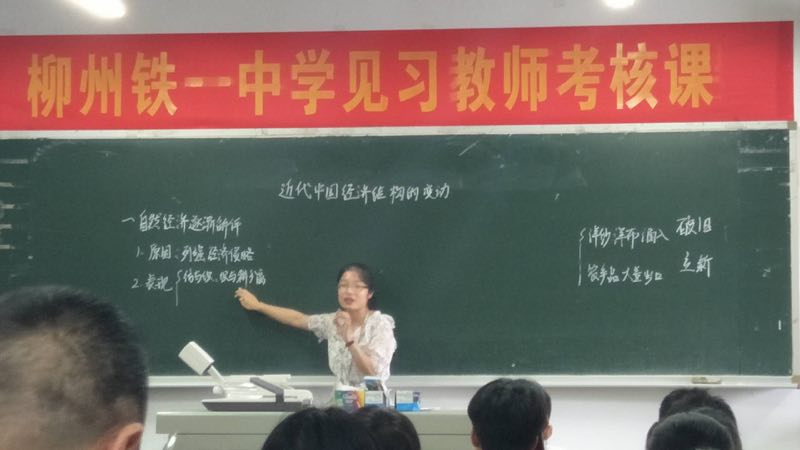 柳州铁一中学见习教师考核课
近代中国经济结构的变动
一.自然经济逐渐解体
1.原因:列强经济侵略
2.表现{纺与织、织与耕分离
{洋纱洋布涌入 破旧
农产品大量出口 立新